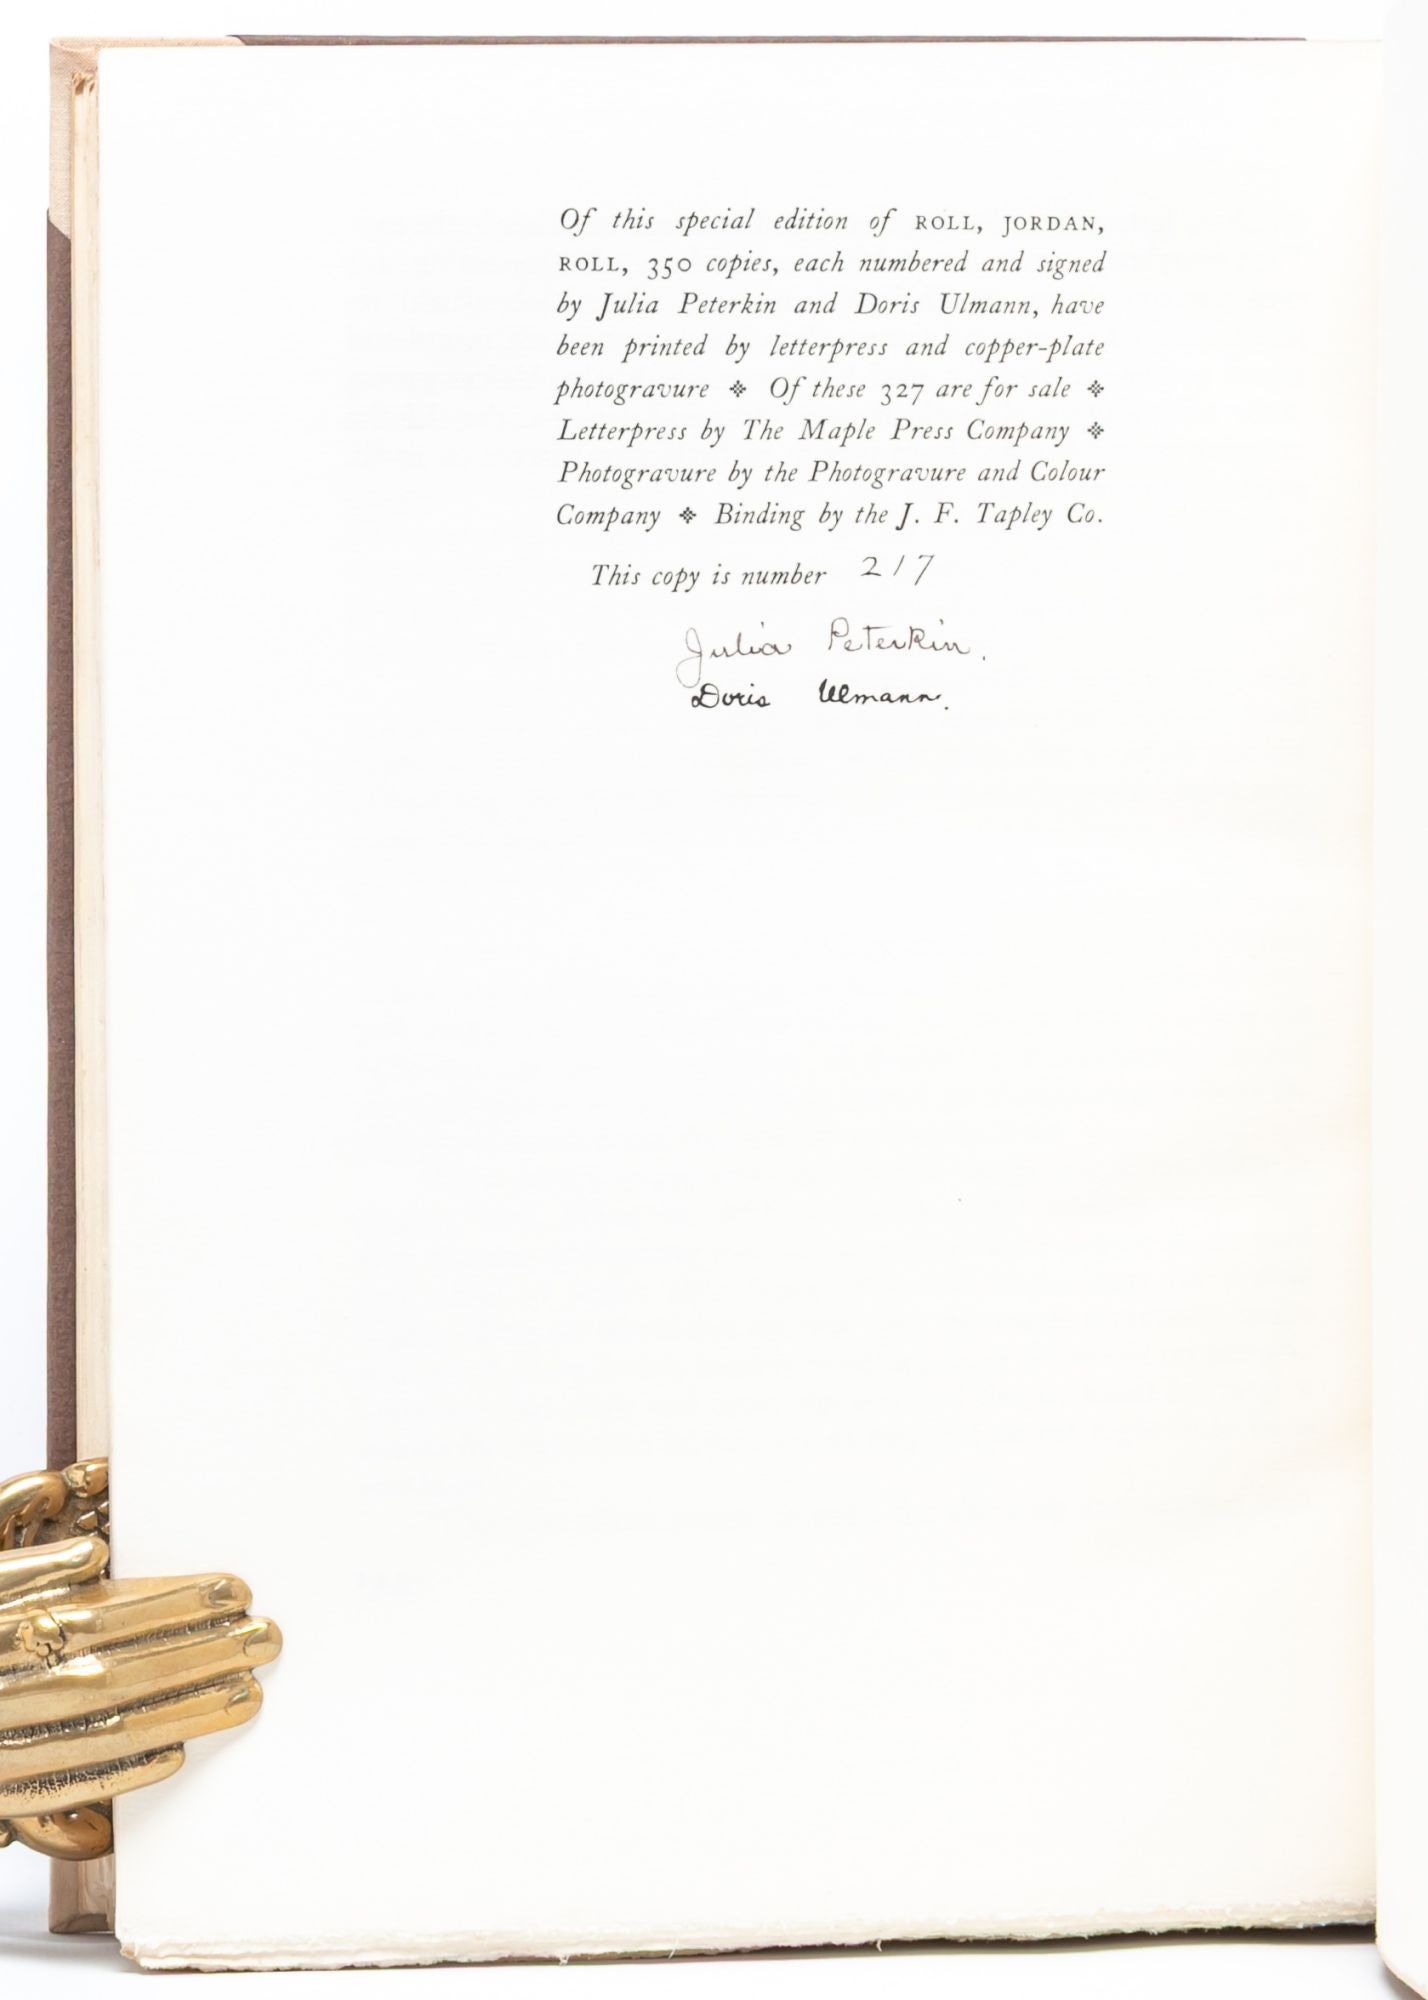 Of this special edition of ROLL, JORDAN,
ROLL, 350 copies, each numbered and signed
by Julia Peterkin and Doris Ulmann, have
been printed by letterpress and copper-plate
photogravure ❖ Of these 327 are for sale ❖
Letterpress by The Maple Press Company ❖
Photogravure by the Photogravure and Colour
Company ❖ Binding by the J. F. Tapley Co.
This copy is number 217
Julia Peterkin.
Doris Ulmann.